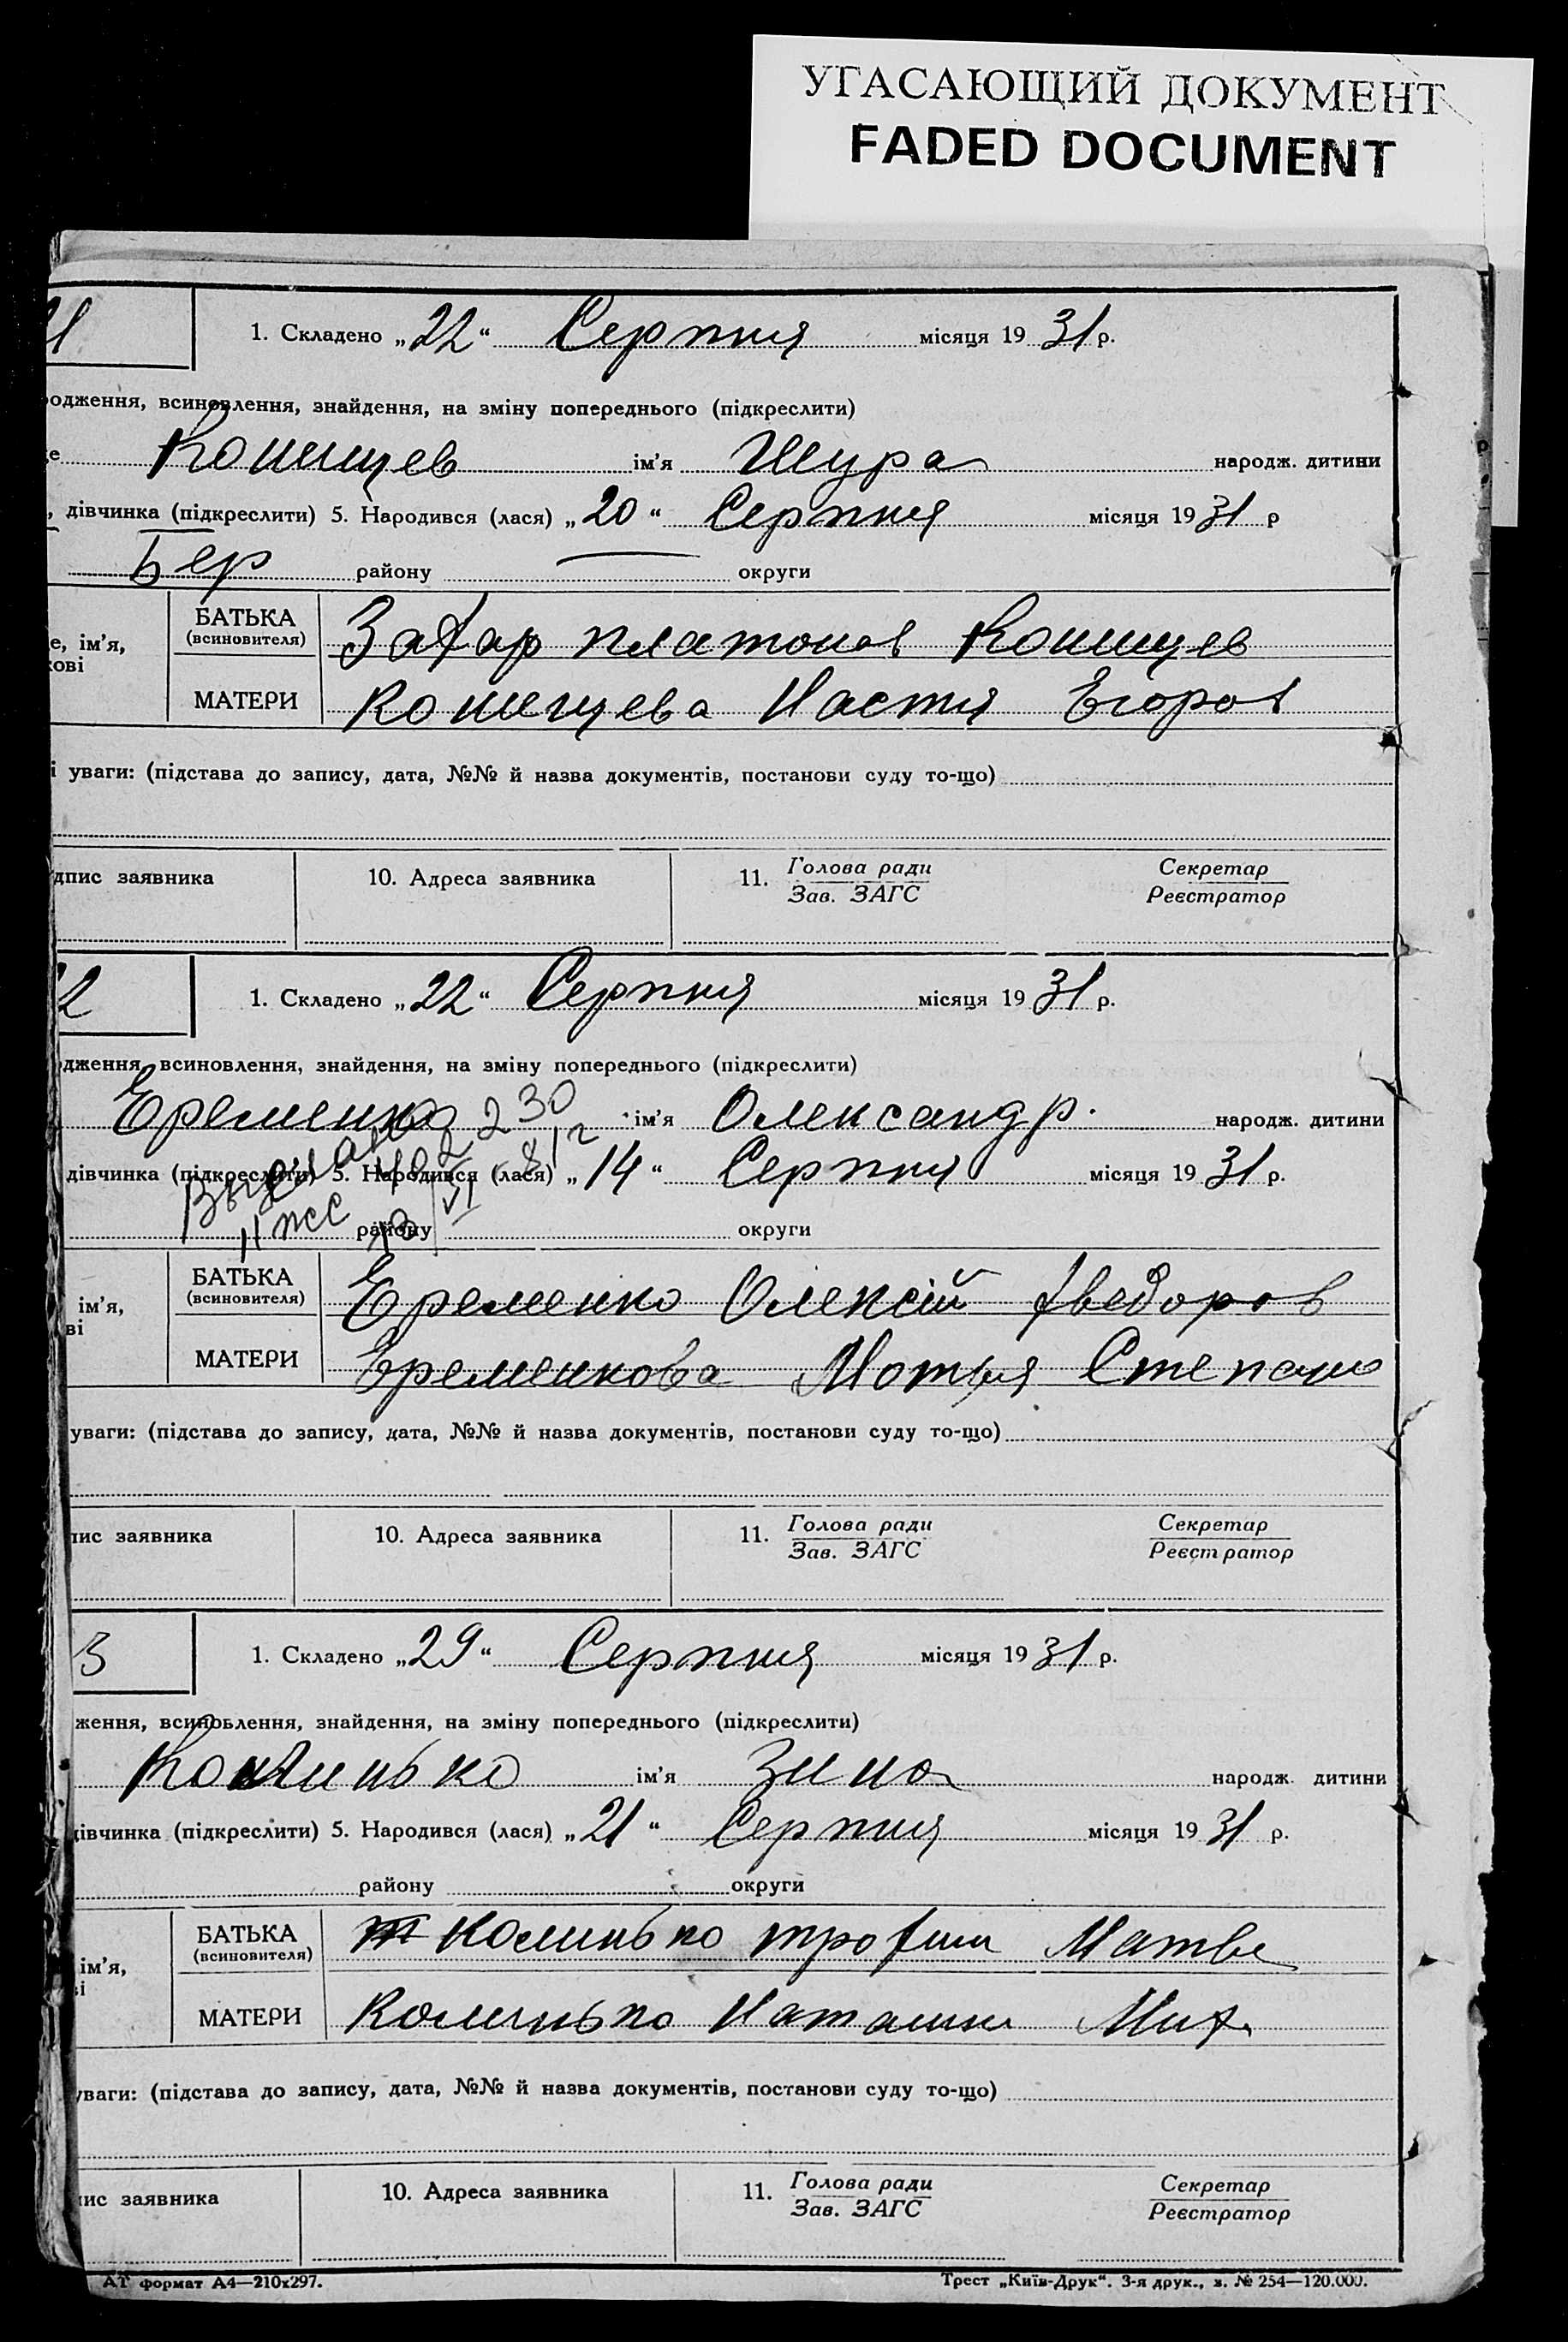 УГАСАЮЩИЙ ДОКУМЕНТ
FADED DOCUMENT
1. Складено „22“ Серпня місяця 19 31 р.
одження, всиновлення, знайдення, на зміну попереднього (підкреслити)
Конищев ім’я Шура народж. дитини
, дівчинка (підкреслити) 5. Народився (лася) „20“ Серпня місяця 19 31 р
Бер району — округи
е, ім’я,
кові
БАТЬКА
(всиновителя)
Захар платонов Конищев
МАТЕРИ Конищева Настя Егоров
і уваги: (підстава до запису, дата, №№ й назва документів, постанови суду то-що)
дпис заявника 10. Адреса заявника 11. Голова ради Секретар
Зав. ЗАГС Реєстратор
2 1. Складено „22“ Серпня місяця 19 31 р.
дження, всиновлення, знайдення, на зміну попереднього (підкреслити)
Еременко 230 ім’я Олександр. народж. дитини
дівчинка (підкреслити) 5. Народився (лася) „14“ Серпня місяця 19 31 р.
району округи
ім’я,
ві
БАТЬКА
(всиновителя)
Еременко Олексій Хведоров
МАТЕРИ Еременкова Мотья Степано
уваги: (підстава до запису, дата, №№ й назва документів, постанови суду то-що)
пис заявника 10. Адреса заявника 11. Голова ради Секретар
Зав. ЗАГС Реєстратор
3 1. Складено „29“ Серпня місяця 19 31 р.
ження, всиновлення, знайдення, на зміну попереднього (підкреслити)
ім’я Зина народж. дитини
дівчинка (підкреслити) 5. Народився (лася) „21“ Серпня місяця 19 31 р.
району округи
ім’я,
і
БАТЬКА
(всиновителя)
Колинько трохим Матве
МАТЕРИ Колинько Наташка Мих.
уваги: (підстава до запису, дата, №№ й назва документів, постанови суду то-що)
ис заявника 10. Адреса заявника 11. Голова ради Секретар
Зав. ЗАГС Реєстратор
АТ формат А4—210х297. Трест „Київ-Друк“. 3-я друк., з. № 254—120.000.